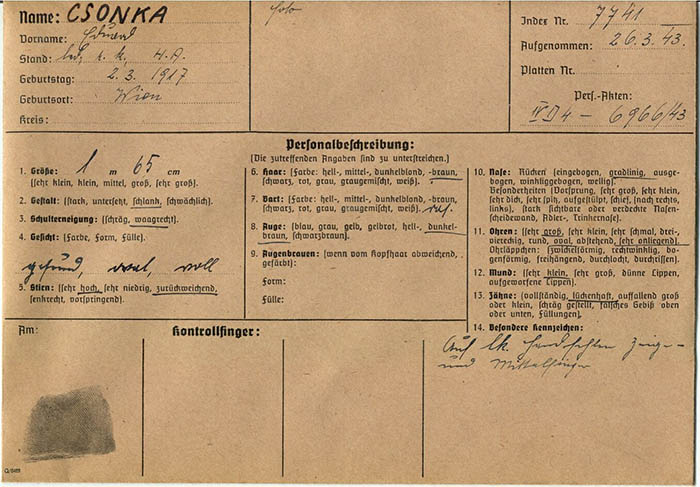 Name: CSONKA
Vorname: Eduard
Stand: led., r. k., H.A.
Geburtstag: 2. 3. 1917
Geburtsort: Wien
Kreis:
Foto
Index Nr. 7741
Aufgenommen: 26.3.43.
Platten Nr.
Pers.-Akten:
IV D4 - 6966/43
Personalbeschreibung:
(Die zutreffenden Angaben sind zu unterstreichen.)
1. Größe: 1 m 65 cm
(sehr klein, klein, mittel, groß, sehr groß).
2. Gestalt: (stark, untersetzt, schlank, schwächlich).
3. Schulterneigung: (schräg, waagrecht).
4. Gesicht: (Farbe, Form, Fülle).
gesund, oval, voll
5. Stirn: (sehr hoch, sehr niedrig, zurückweichend,
senkrecht, vorspringend).
6. Haar: (Farbe: hell-, mittel-, dunkelblond, -braun,
schwarz, rot, grau, graugemischt, weiß).
7. Bart: (Farbe: hell-, mittel-, dunkelblond, -braun,
schwarz, rot, grau, graugemischt, weiß).
8. Auge: (blau, grau, gelb, gelbrot, hell-, dunkel-
braun, schwarzbraun).
9. Augenbrauen: (wenn vom Kopfhaar abweichend,
gefärbt):
Form:
Fülle:
10. Nase: Rücken (eingebogen, gradlinig, ausge-
bogen, winkliggebogen, wellig).
Besonderheiten (Vorsprung, sehr groß, sehr klein,
sehr dick, sehr spitz, aufgestülpt, schief, (nach rechts,
links), stark sichtbare oder verdeckte Nasen-
scheidewand, Adler-, Trinkernase).
11. Ohren: (sehr groß, sehr klein, sehr schmal, drei-,
viereckig, rund, oval, abstehend, sehr anliegend).
Ohrläppchen: (zwickelförmig, rechtwinklig, bo-
genförmig, freihängend, durchlocht, durchrissen).
12. Mund: (sehr klein, sehr groß, dünne Lippen,
aufgeworfene Lippen).
13. Zähne: (vollständig, lückenhaft, auffallend groß
oder klein, schräg gestellt, falsches Gebiß oben
oder unten, Füllungen).
14. Besondere Kennzeichen:
Auf lk. Hand fehlen Zeige-
und Mittelfinger
Am:
Kontrollfinger: